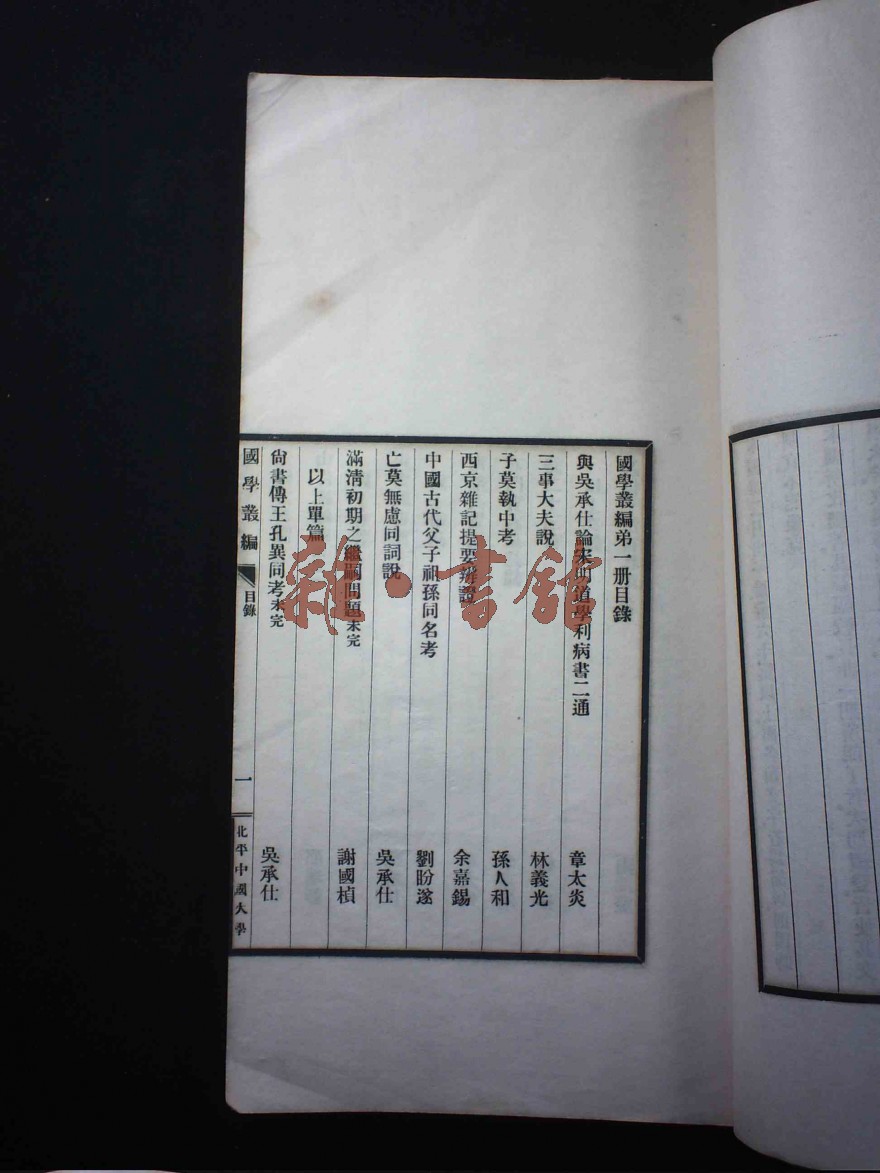 國學叢編弟一册目錄
與吳承仕論宋明道學利病書二通 章太炎
三事大夫說 林義光
子莫執中考 孫人和
西京雜記提要辨證 余嘉錫
中國古代父子祖孫同名考 劉盼遂
亡莫無慮同詞說 吳承仕
滿清初期之繼嗣問題未完 謝國楨
以上單篇
尙書傳王孔異同考未完 吳承仕
國學叢編 目錄 一 北平中國大學
雜·書館